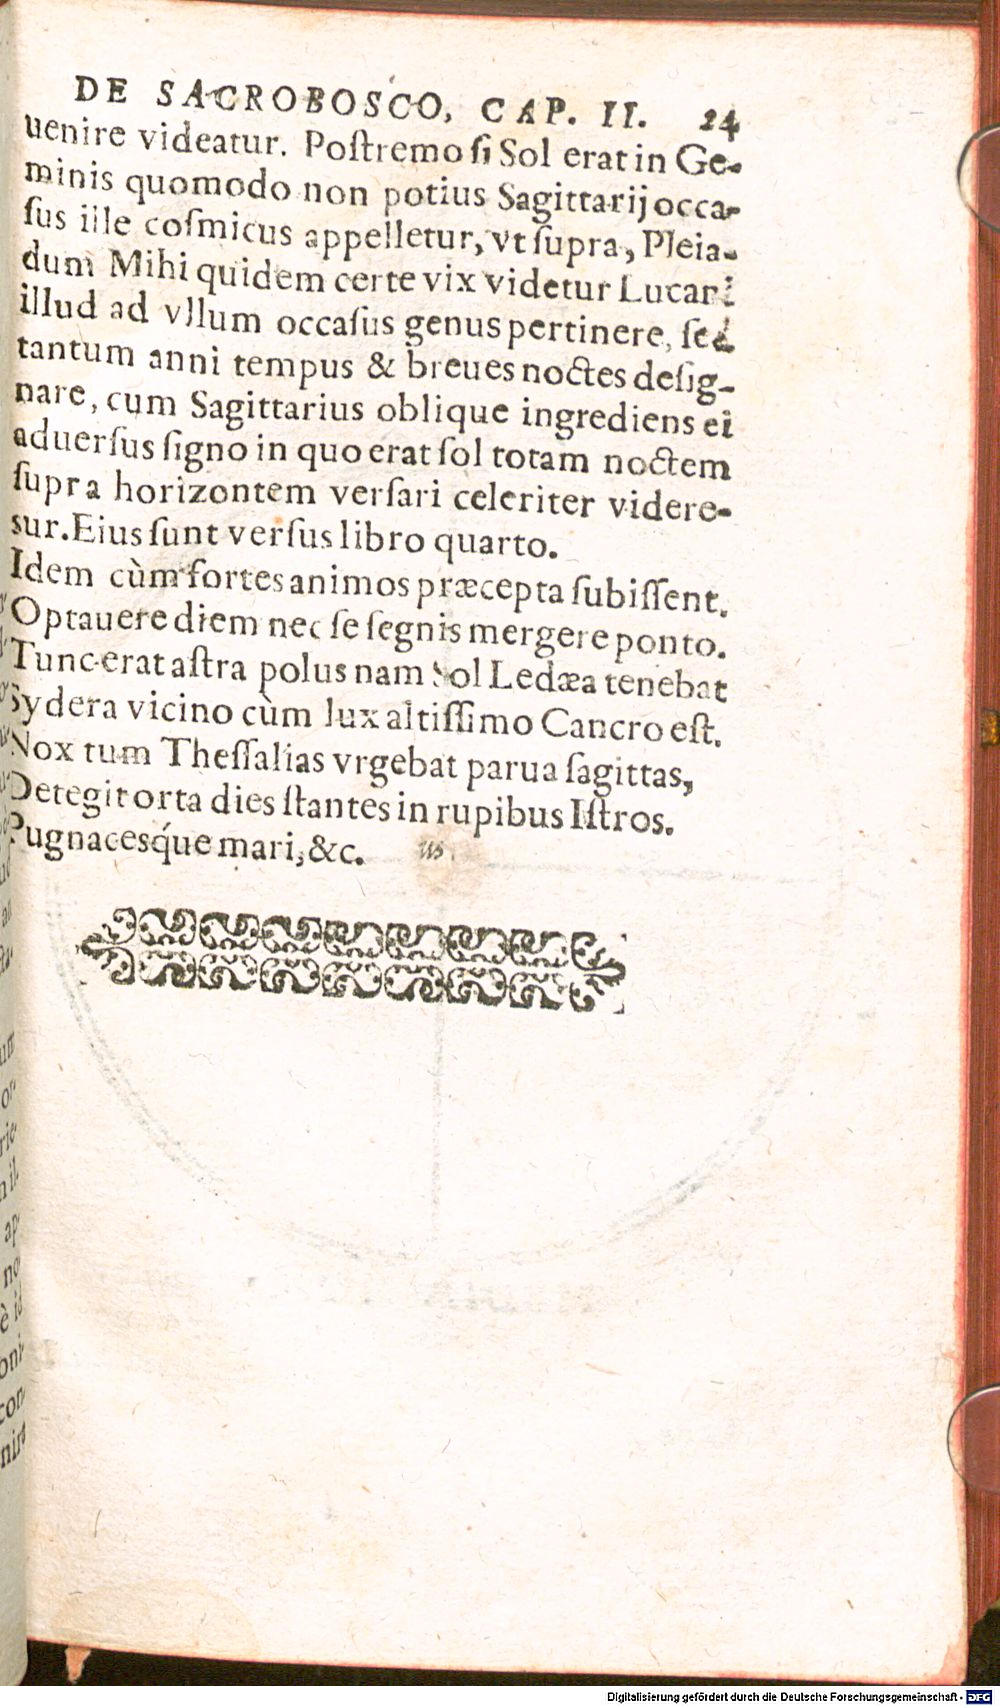 DE SACROBOSCO, CAP. II. 24
uenire videatur. Poſtremo ſi Sol erat in Ge-
minis quomodo non potius Sagittarij occa-
ſus ille coſmicus appelletur, vt ſupra, Pleia-
dum Mihi quidem certe vix videtur Lucani
illud ad vllum occaſus genus pertinere, ſed
tantum anni tempus & breues noctes deſig-
nare, cum Sagittarius oblique ingrediens ei
aduerſus ſigno in quo erat ſol totam noctem
ſupra horizontem verſari celeriter videre-
sur. Eius ſunt verſus libro quarto.
Idem cùm fortes animos præcepta ſubiſſent.
Optauere diem nec ſe ſegnis mergere ponto.
Tunc erat aſtra polus nam Sol Ledæa tenebat
Sydera vicino cùm lux altiſſimo Cancro eſt.
Nox tum Theſſalias vrgebat parua ſagittas,
Detegit orta dies ſtantes in rupibus Iſtros.
Pugnacesq́ue mari, &c.
Digitalisierung gefördert durch die Deutsche Forschungsgemeinschaft - DFG